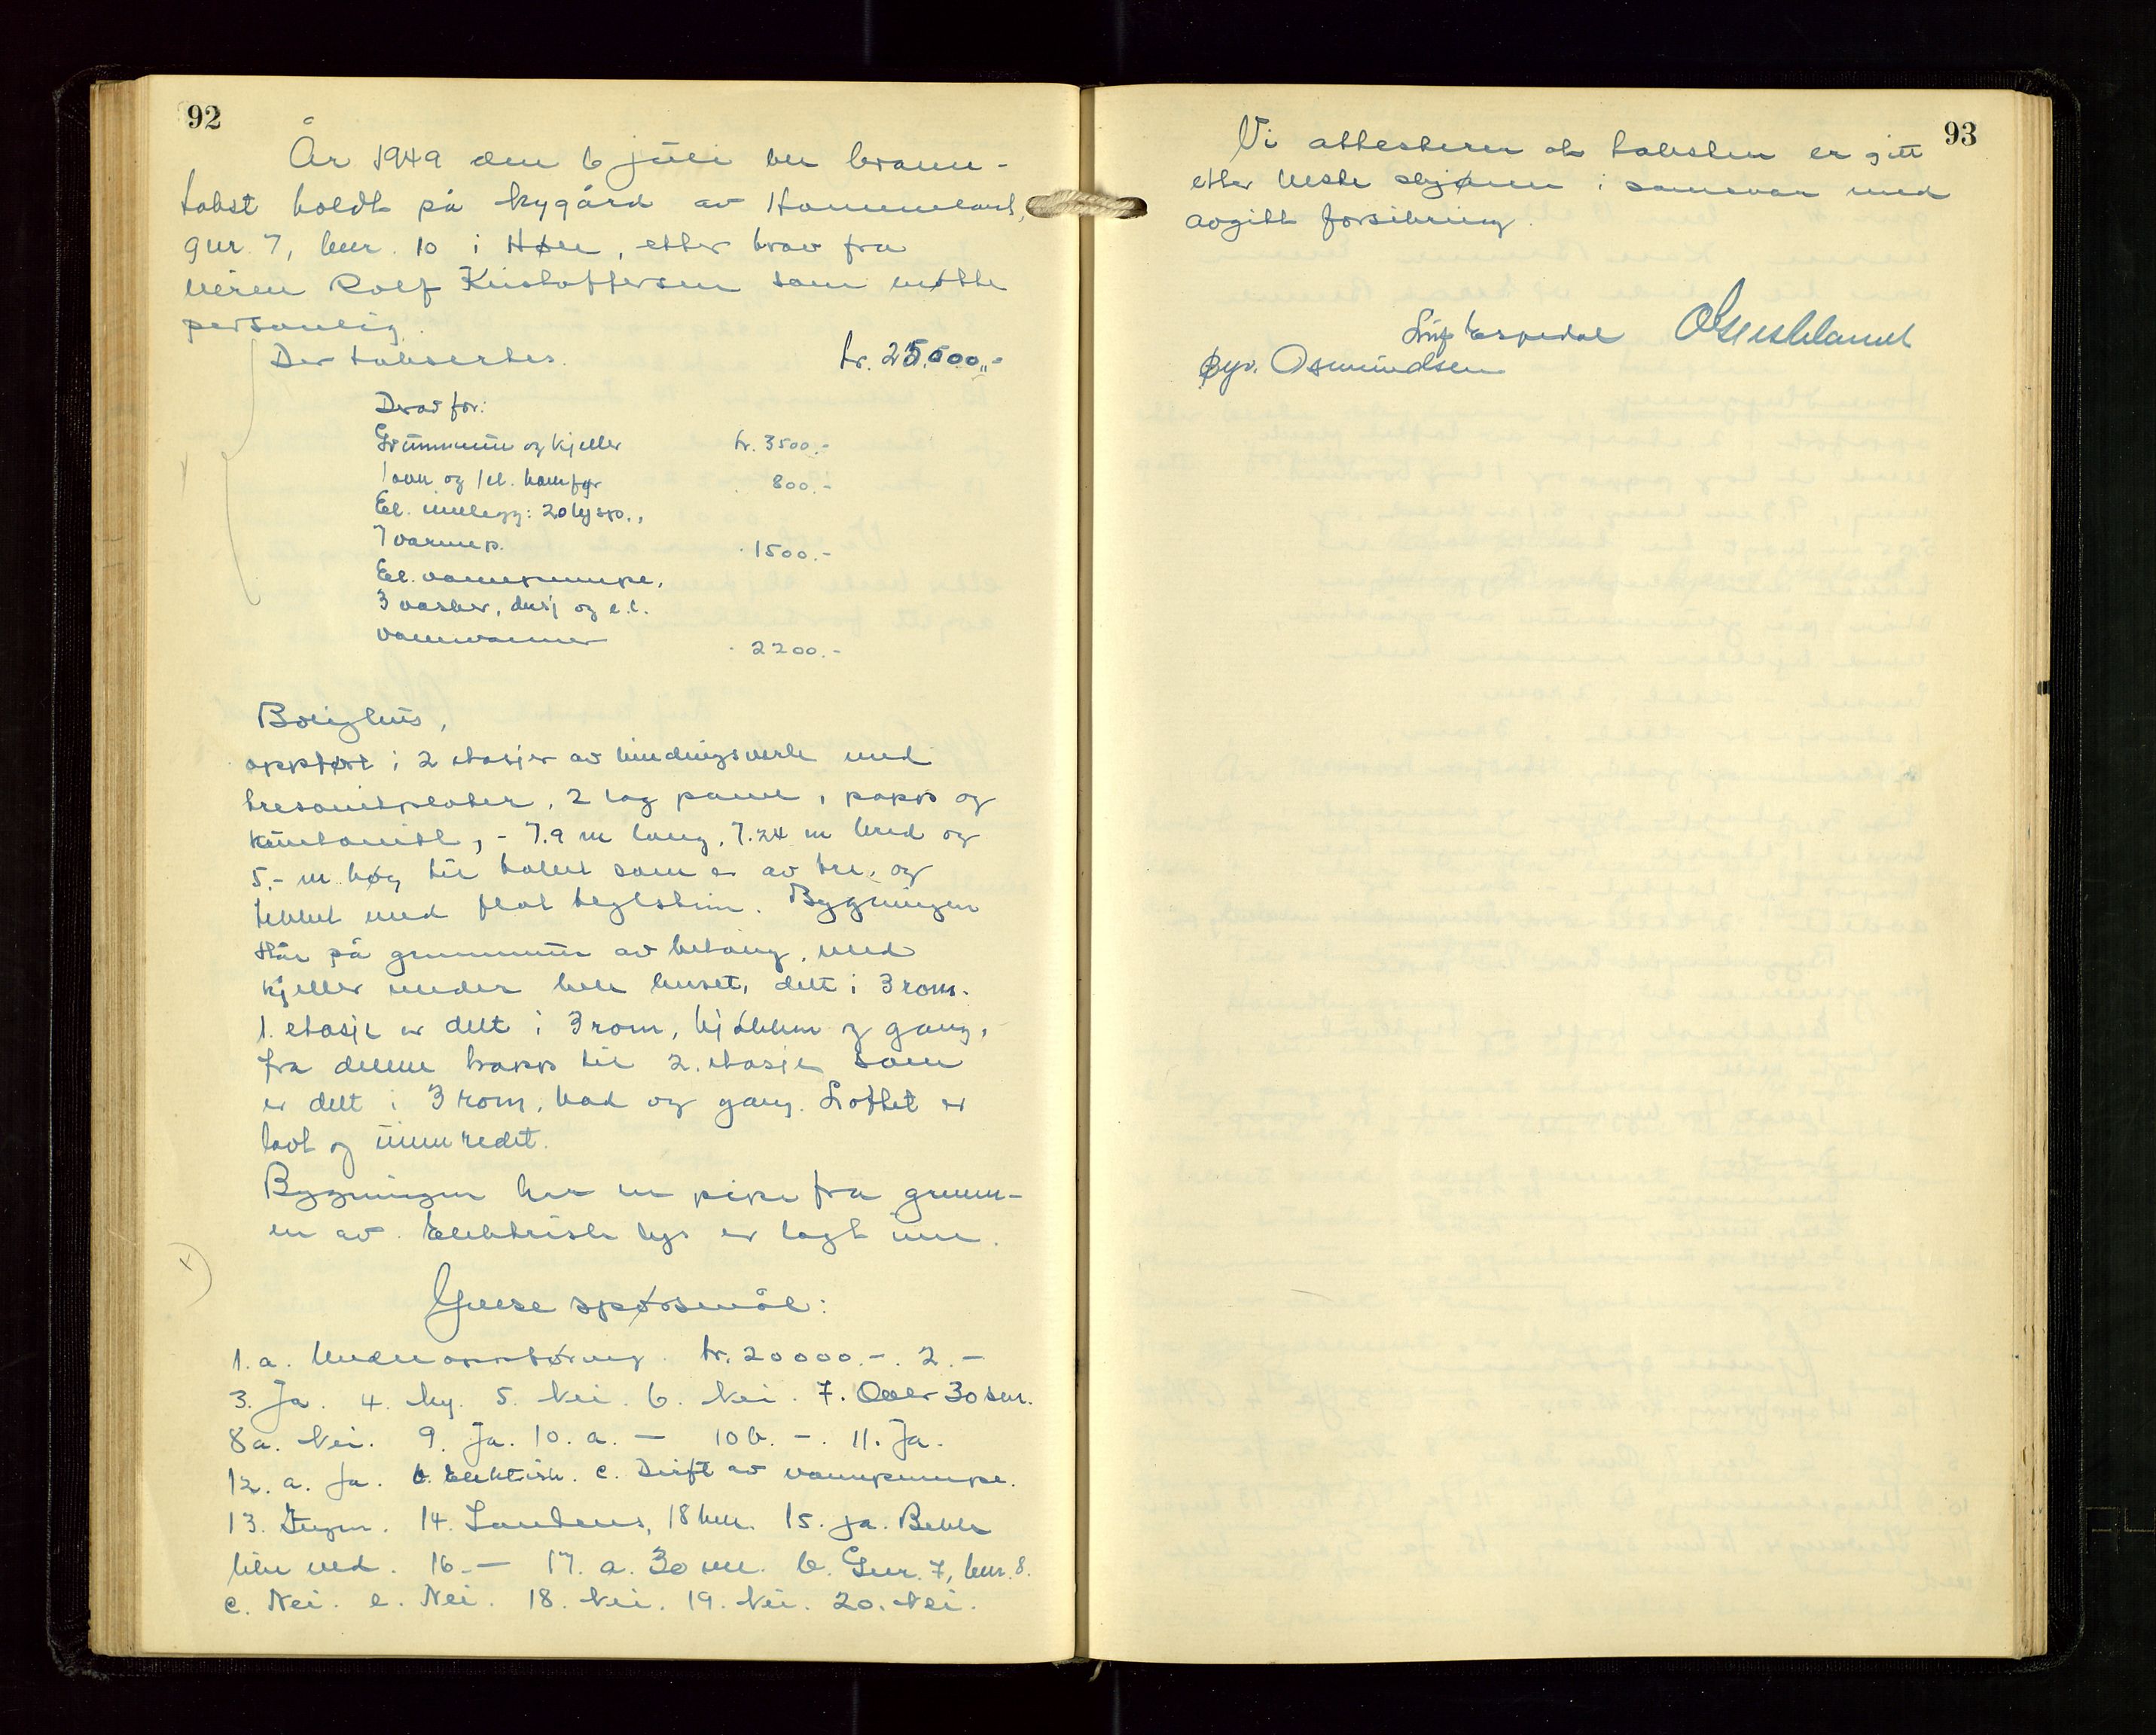 92
År 1949 den 6 juli ble brann-
takst holdt på nygård av Hommeland,
gnr. 7, bnr. 10 i Høle, etter krav fra
eieren Rolf Kristoffersen som møtte
personlig.
Der taksertes. kr. 25.500,-
Derav for:
Grunnmur og kjeller kr. 3500.-
1 ovn og 1 el. komfyr 800.-
El. innlegg: 20 lysp.,
7 varmep. 1500.-
El. vannpumpe,
3 vasker, dusj og e.l.
vannvarmer 2200.-
Bolighus,
oppført i 2 etasjer av bindingsverk med
tresonitplater, 2 lag panel, papp og
- 7.9 m lang, 7.24 m bred og
5.- m høg til taket som er av tre, og
tekket med flat teglstein. Bygningen
står på grunnmur av betong, med
kjeller under hele huset, delt i 3 rom.
1. etasje er delt i 3 rom, kjøkken og gang,
fra denne trapp til 2. etasje som
er delt i 3 rom, bad og gang. Loftet er
lavt og uinnredet.
Bygningen har en pipe fra grunn-
en av. Elektrisk lys er lagt inn.
Ymse spørsmål:
1. a. Under oppføring. kr. 20000.-. 2. -
3. Ja. 4. Ny. 5. Nei. 6. Nei. 7. Over 30 sm.
8a. Nei. 9. Ja. 10. a. - 10 b. -. 11. Ja.
12. a. Ja. b. Elektrisk. c. Drift av vannpumpe.
13. Ingen. 14. Sandnes, 18 km. 15. Ja. Bekk
like ved. 16. - 17. a. 30 m. b. Gnr. 7, bnr. 8.
c. Nei. e. Nei. 18. Nei. 19. Nei. 20. Nei.
93
Vi attesterer at taksten er gitt
etter beste skjønn i samsvar med
avgitt forsikring.
Espedal
Øyv. Osmundsen